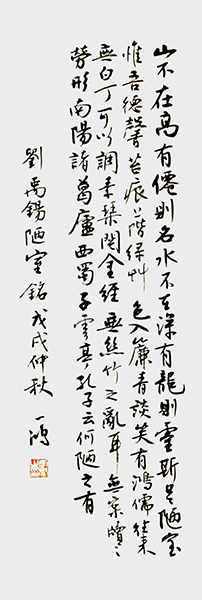 山不在高有僊則名水不在深有龍則靈斯是陋室
惟吾德馨苔痕上階綠艸色入簾青談笑有鴻儒往來
無白丁可以調素琴閱金經無絲竹之亂耳無案牘之
勞形南陽諸葛廬西蜀子雲亭孔子云何陋之有
劉禹錫陋室銘戊戌仲秋一鴻